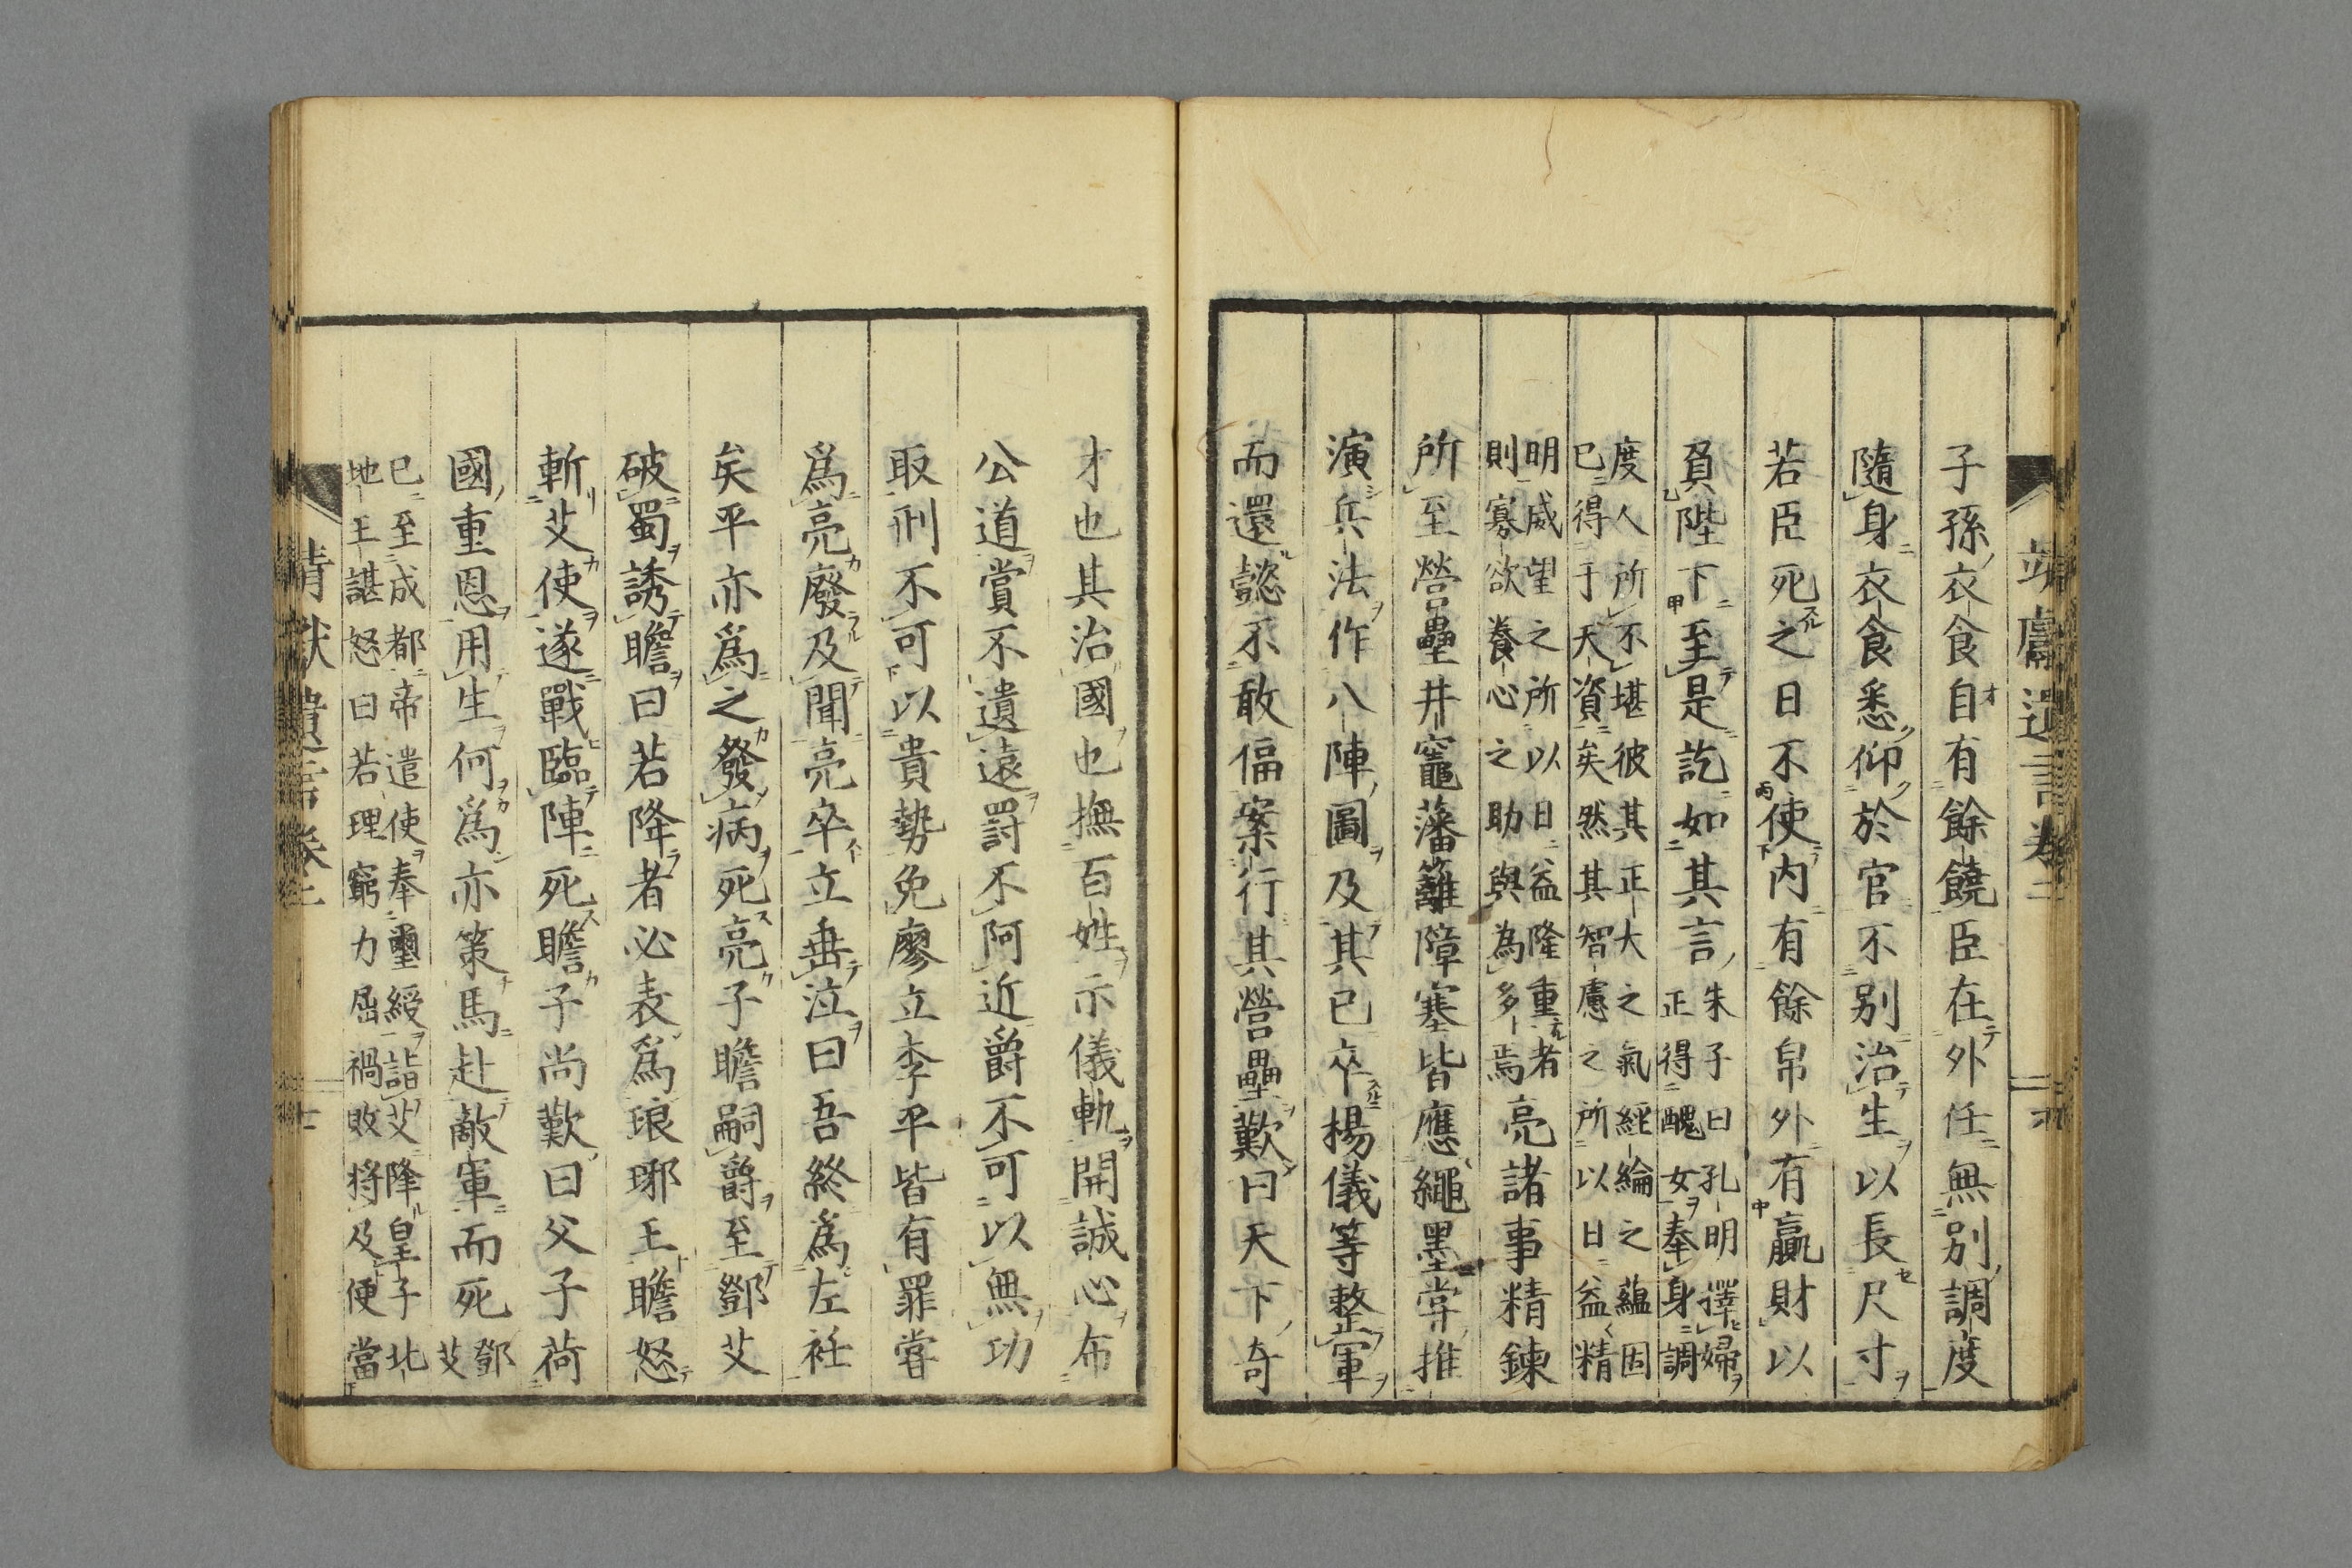 靖獻遺言卷二
子孫衣食自有餘饒臣在外任無別調度
隨身衣食悉仰於官不別治生以長尺寸
若臣死之日不使內有餘帛外有贏財以
負陛下至是訖如其言
朱子曰孔明擇婦
正得醜女奉身調
度人所不堪彼其正大之氣經綸之蘊固
已得于天資矣然其智慮之所以日益精
明威望之所以日益隆重者
則寡欲養心之助與為多焉
亮諸事精鍊
所至營壘井竈藩籬障塞皆應繩墨甞推
演兵法作八陣圖及其已卒楊儀等整軍
而還懿不敢偪案行其營壘歎曰天下奇
才也其治國也撫百姓示儀軌開誠心布
公道賞不遺遠罰不阿近爵不可以無功
取刑不可以貴勢免廖立李平皆有罪甞
爲亮廢及聞亮卒立垂泣曰吾終爲左衽
矣平亦爲之發病死亮子瞻嗣爵至鄧艾
破蜀誘瞻曰若降者必表爲琅琊王瞻怒
斬艾使遂戰臨陣死瞻子尚歎曰父子荷
國重恩用生何爲亦策馬赴敵軍而死
鄧
艾
已至成都帝遣使奉璽綬詣艾降皇子北
地王諶怒曰若理窮力屈禍敗將及便當
靖獻遺言卷二